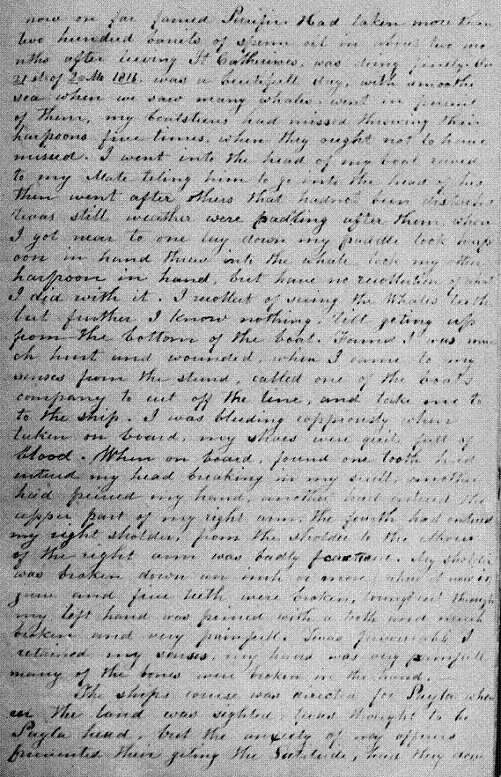 now on far famed Pacific. Had taken more than
two hundred barrels of sperm oil in about two mo
nths after leaving St Catherines, was doing finely. On
21st of 2d Mo 1816. was a beutifull day, with smooth
sea when we saw many whales. went in persuit
of them, my boatsteers had missed throwing their
harpoons five times, when they ought not to have
missed. I went into the head of my boat rowed
to my Mate teling him to go into the head of his
then went after others that hadnot been disturbed
twas still weather were padling after them when
I got near to one lay down my paddle took harp
oon in hand threw into the whale took my other
harpoon in hand, but have no recollection of what
I did with it. I recollect of seeing the Whales teeth
but further I know nothing, till geting up
from the bottom of the boat. Found I was mu
ch hurt and wounded. when I came to my
senses from the stund, called one of the boats
company to cut off the line, and take me to
to the ship. I was bleeding coppiously when
taken on board, my shoes were quite full of
blood. When on board, found one tooth had
entered my head breaking in my scull, another
had pierced my hand, another had entered the
upper part of my right arm, the fourth had entered
my right sholder, from the sholder to the elbow
of the right arm was badly fracture. My sholder
was broken down an inch or more, where it now is
jaw and five teeth were broken, tongue cut through
my left hand was peirced with a tooth and much
broken and very painfull. Twas favourable I
retained my senses, my hand was very painfull
many of the bones were broken in the hand.
The ships course was directed for Payta when
the land was sighted twas thought to be
Payta head, but the anxiety of my officers
prevented them geting the Latitude, had they done